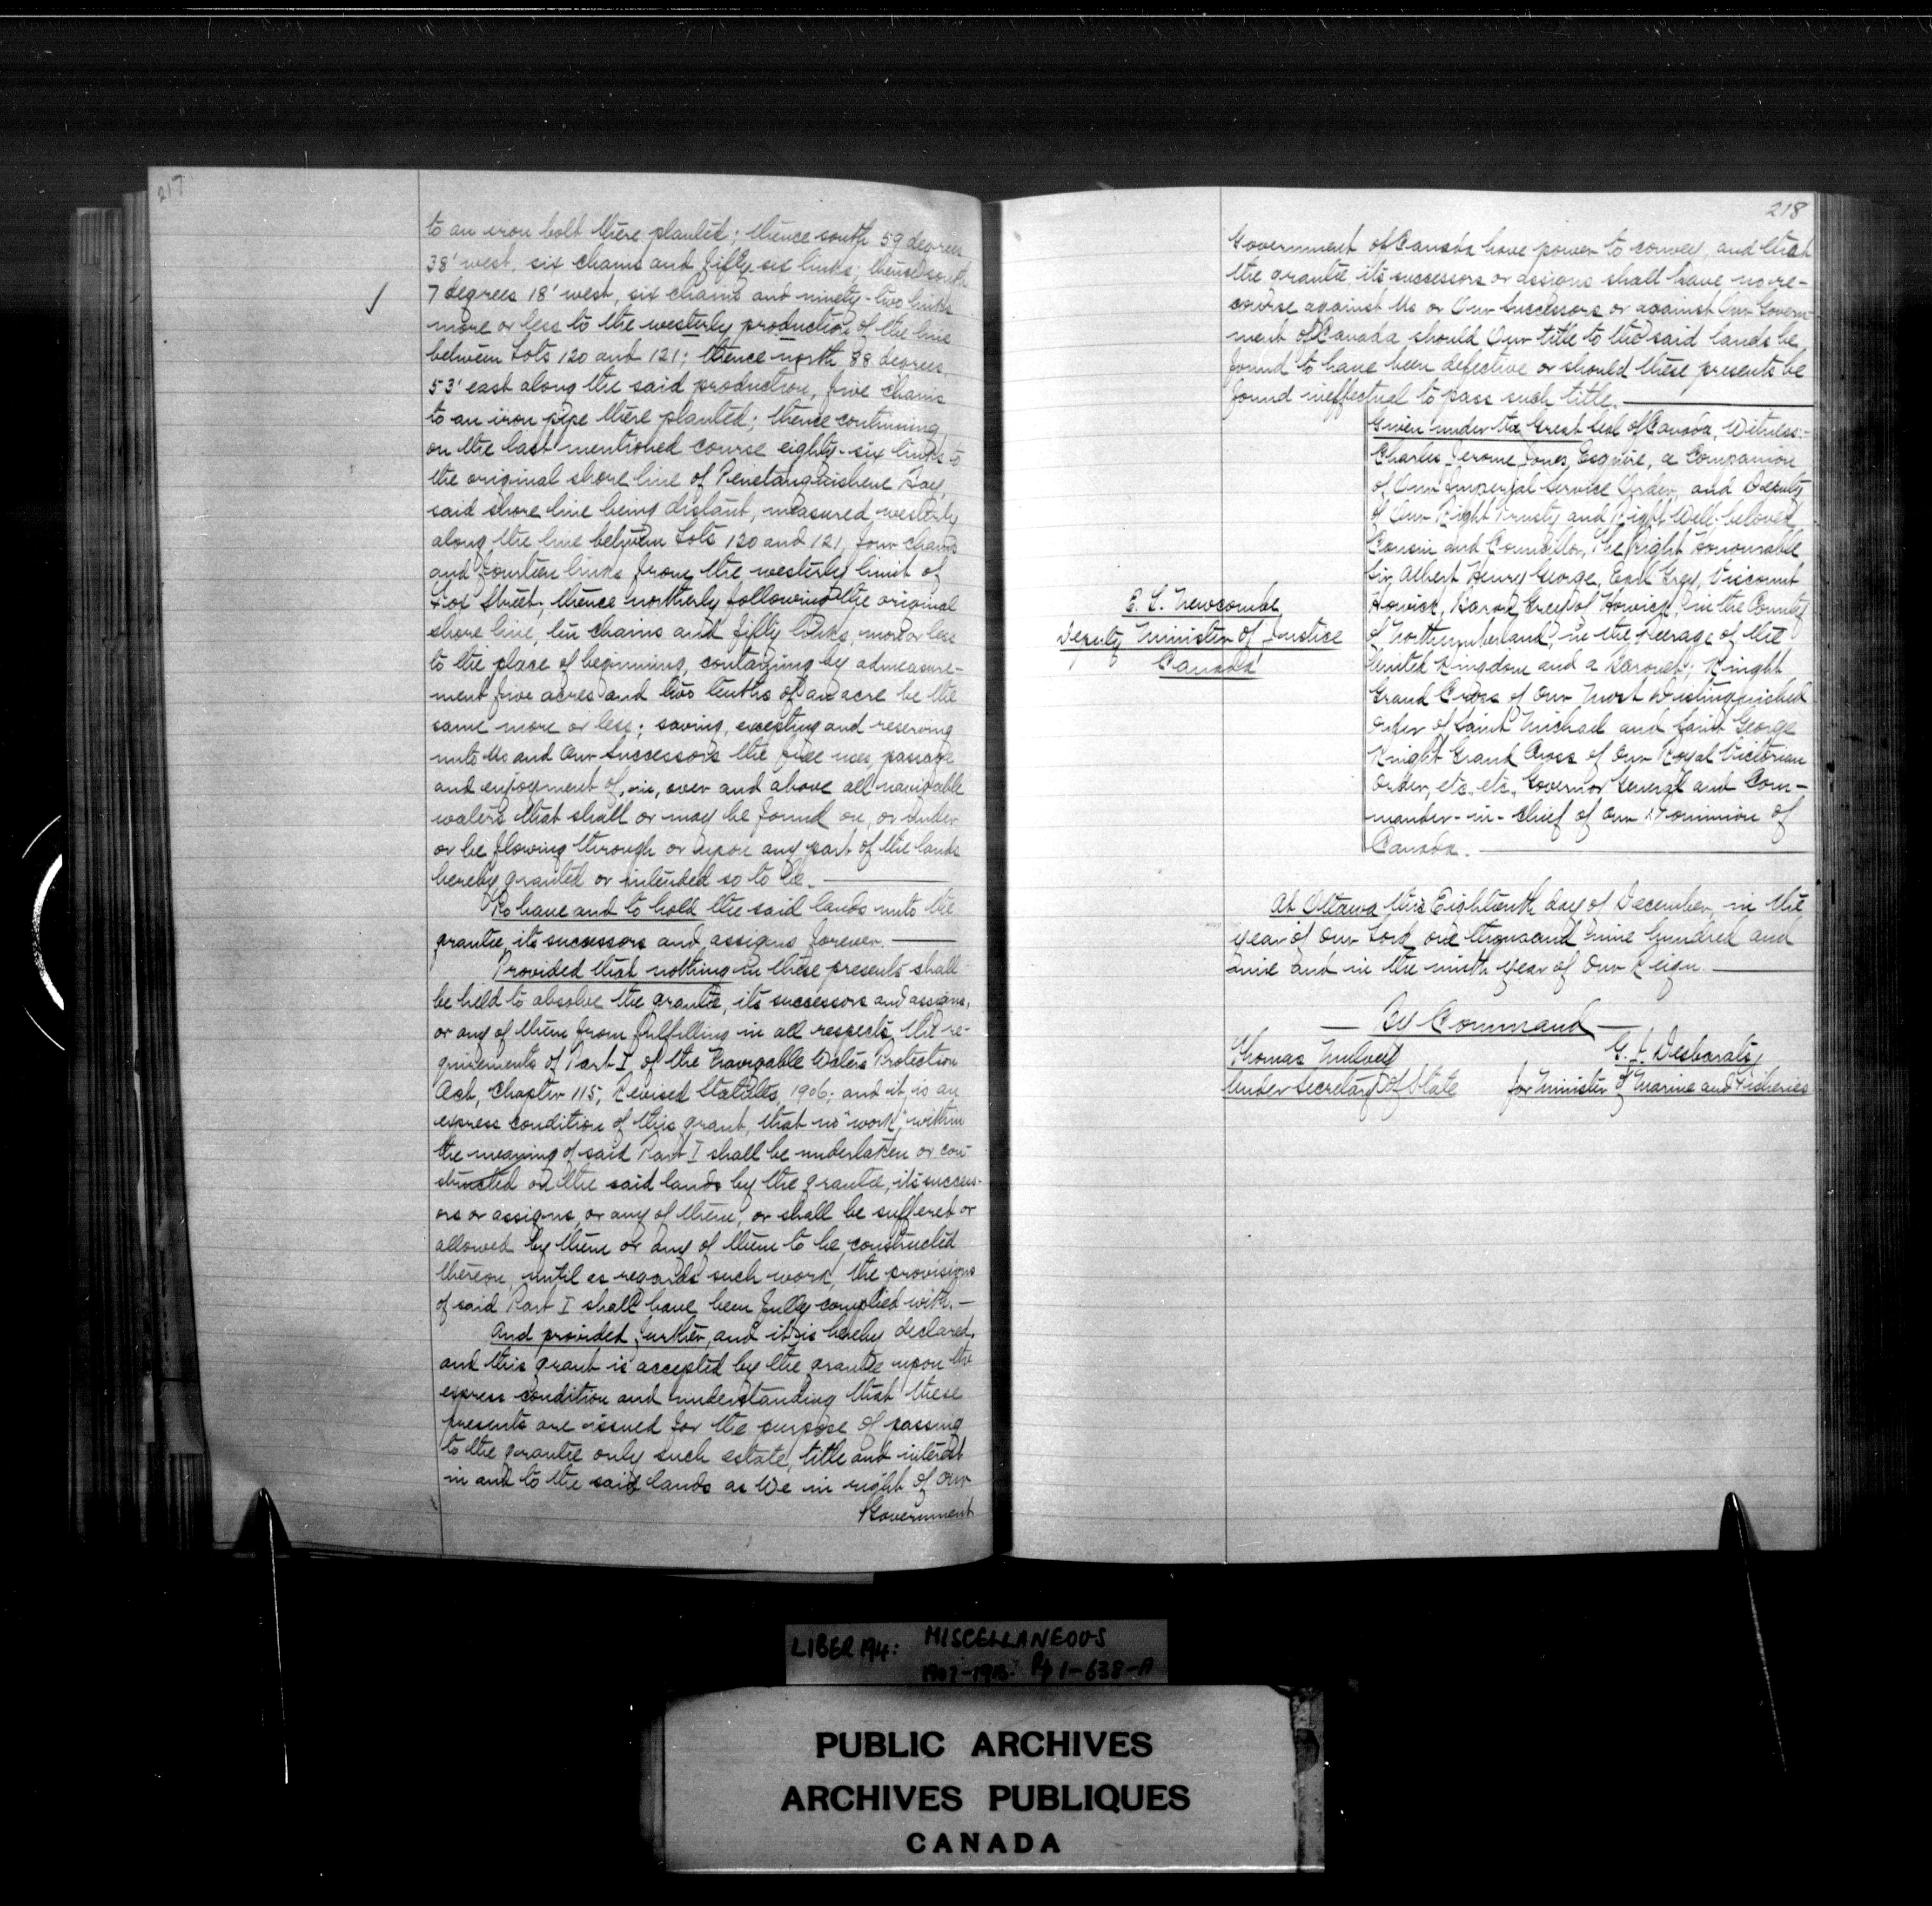 217
to an iron bolt there planted; thence south 59 degrees
38' west, six chains and fifty-six links; thence south
7 degrees 18' west, six chains and ninety-two links
more or less to the westerly production of the line
between Lots 120 and 121; thence north 88 degrees
53' east along the said production, five chains
to an iron pipe there planted; thence continuing
on the last mentioned course eighty-six links to
the original shore line of Penetanguishene Bay,
said shore line being distant, measured westerly
along the line between Lots 120 and 121, four chains
and fourteen links from the westerly limit of
Fox Street; thence northerly following the original
shore line, ten chains and fifty links, more or less
to the place of beginning, containing by admeasure-
ment five acres and two tenths of an acre be the
same more or less; saving, excepting and reserving
unto Us and Our Successors the free uses, passage
and enjoyment of, in, over and above all navigable
waters that shall or may be found on, or under
or be flowing through or upon any part of the lands
hereby granted or intended so to be.
To have and to hold the said lands unto the
grantee, its successors and assigns forever.
Provided that nothing in these presents shall
be held to absolve the grantee, its successors and assigns,
or any of them from fulfilling in all respects the re-
quirements of Part I of the Navigable Waters Protection
Act, Chapter 115, Revised Statutes, 1906; and it is an
express condition of this grant, that no "work", within
the meaning of said Part I shall be undertaken or con-
structed on the said lands by the grantee, its success-
ors or assigns, or any of them, or shall be suffered or
allowed by them or any of them to be constructed
thereon, until as regards such work, the provisions
of said Part I shall have been fully complied with.
And provided further, and it is hereby declared,
and this grant is accepted by the grantee upon the
express condition and understanding that these
presents are issued for the purpose of passing
to the grantee only such estate, title and interest
in and to the said lands as We in right of Our
Government
218
Government of Canada have power to convey, and that
the grantee its successors or assigns shall have no re-
course against Us or Our Successors or against Our Govern-
ment of Canada should Our title to the said lands be
found to have been defective or should these presents be
found ineffectual to pass such title.
Given under the Great Seal of Canada, Witness:-
Charles Jerome Jones, Esquire, a Companion
of Our Imperial Service Order, and Deputy
of Our Right Trusty and Right Well-beloved
Cousin and Councillor, The Right Honourable
Sir Albert Henry George, Earl Grey, Viscount
Howick, Baron Grey of Howick, in the County
of Northumberland, in the Peerage of the
United Kingdom and a Baronet; Knight
Grand Cross of Our Most Distinguished
Order of Saint Michael and Saint George
Knight Grand Cross of Our Royal Victorian
Order, etc., etc., Governor General and Com-
mander-in-Chief of Our Dominion of
Canada.
E. L. Newcombe
Deputy Minister of Justice
Canada
At Ottawa this Eighteenth day of December, in the
year of Our Lord one thousand nine hundred and
nine and in the ninth year of Our Reign.
By Command
Thomas Mulvey
Under Secretary of State
G. J. Desbarats,
for Minister of Marine and Fisheries
LIBER 194: MISCELLANEOUS
1907-1913. Pp 1-638-A
PUBLIC ARCHIVES
ARCHIVES PUBLIQUES
CANADA